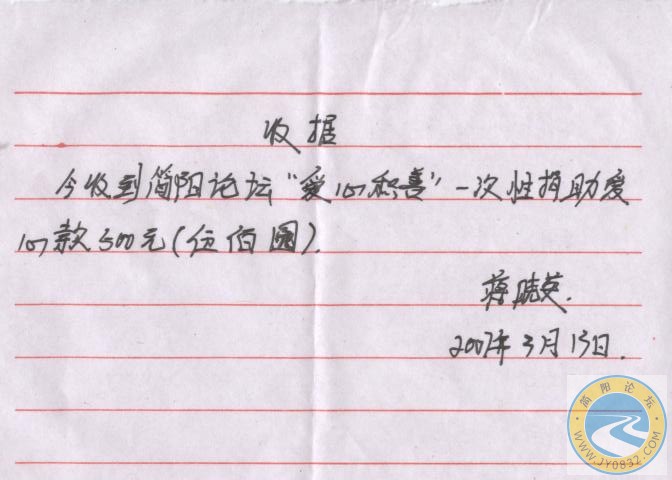 收据
今收到简阳论坛“爱心积善”一次性捐助爱
心款500元(伍佰圆).
蒋晓英.
2007年3月13日.
·简阳论坛·
WWW.JY0832.COM